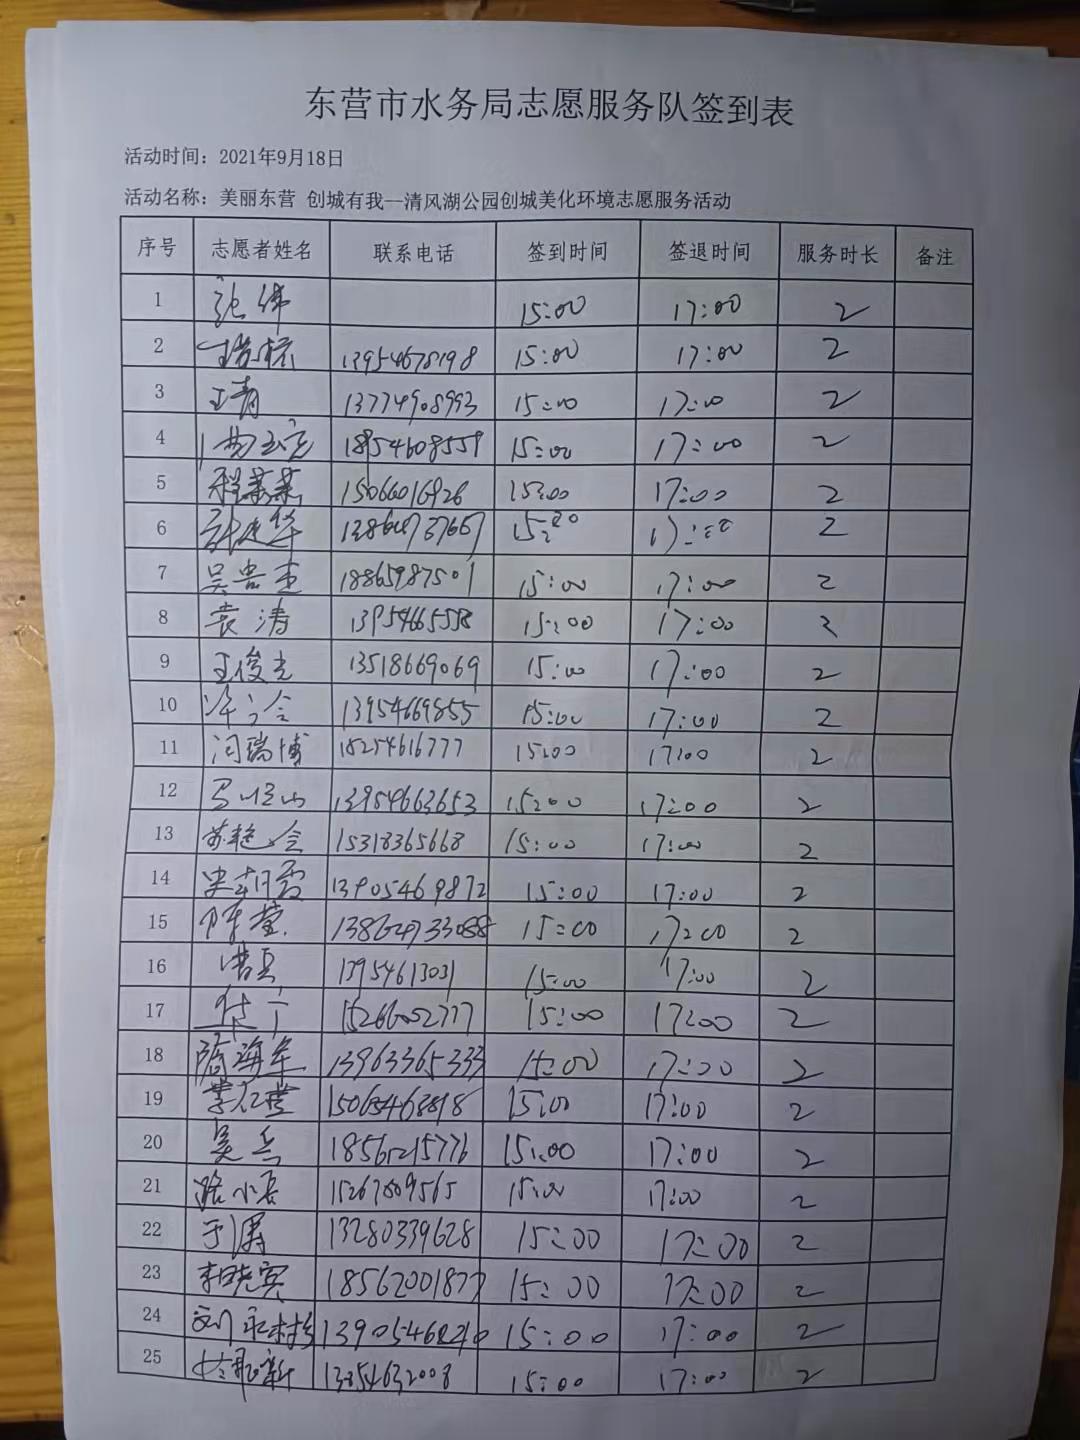 东营市水务局志愿服务队签到表
活动时间：2021年9月18日
活动名称：美丽东营 创城有我--清风湖公园创城美化环境志愿服务活动
序号 志愿者姓名 联系电话 签到时间 签退时间 服务时长 备注
1 张伟 15:00 17:00 2
2 13954678198 15:00 17:00 2
3 王青 13774908993 15:00 17:00 2
4 18954608559 15:00 17:00 2
5 程燕燕 15066016926 15:00 17:00 2
6 15:00 17:00 2
7 18865987501 15:00 17:00 2
8 袁涛 13954665558 15:00 17:00 2
9 王俊 13518669069 15:00 17:00 2
10 13954669855 15:00 17:00 2
11 闫瑞博 18254616777 15:00 17:00 2
12 13954663653 15:00 17:00 2
13 苏艳会 15318365668 15:00 17:00 2
14 13905469872 15:00 17:00 2
15 15:00 17:00 2
16 1395461303 15:00 17:00 2
17 15266002777 15:00 17:00 2
18 海军 13963365333 15:00 17:00 2
19 15:00 17:00 2
20 吴兵 18561215776 15:00 17:00 2
21 15267809565 15:00 17:00 2
22 于潺 13280339628 15:00 17:00 2
23 18562001877 15:00 17:00 2
24 15:00 17:00 2
25 15:00 17:00 2